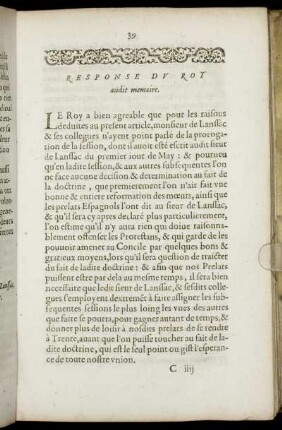 39
RESPONSE DV ROY
audit memoire.
LE Roy a bien agreable que pour les raisons
deduites au present article, monsieur de Lanssac
& ses collegues n'ayent point parlé de la prorogation
de la session, dont il auoit esté escrit audit sieur
de Lanssac du premier iour de May : & pourueu
qu'en ladite session, & aux autres subsequentes l'on
ne face aucune decision & determination au fait de
la doctrine, que premierement l'on n'ait fait vne
bonne & entiere reformation des mœurs, ainsi que
les prelats Espagnols l'ont dit au sieur de Lanssac,
& qu'il sera cy apres declaré plus particulierement,
l'on estime qu'il n'y aura rien qui doiue raisonnablement
offenser les Protestans, & qui garde de les
pouuoir amener au Concile par quelques bons &
gratieux moyens, lors qu'il sera question de traicter
du fait de ladite doctrine: & afin que nos Prelats
puissent estre par dela au mesme temps, il sera bien
necessaite que ledit sieur de Lanssac, & sesdits collegues
s'employent d'extremét à faire assigner les subsequentes
sessions le plus loing les vnes des autres
que faire se pourra, pour gagner autant de temps, &
donner plus de loisir à nosdits prelats de se rendre
à Trente, auant que l'on puisse toucher au fait de ladite
doctrine, qui est le seul point ou gist l'esperance
de toute nostre vnion.
C iiij